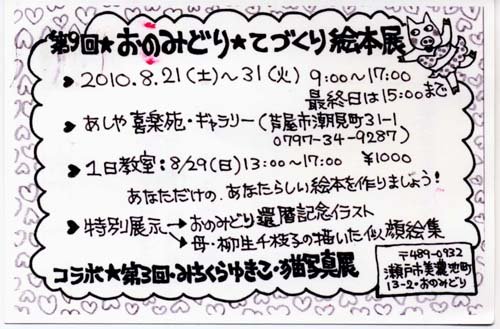 第9回★おのみどり★てづくり絵本展
2010.8.21(土)～31(火) 9:00～17:00
最終日は15:00まで
あしや喜楽苑・ギャラリー(芦屋市潮見町31-1
0797-34-9287)
1日教室:8/29(日)13:00～17:00 ¥1000
あなただけの、あなたらしい絵本を作りましょう!
特別展示→おのみどり還暦記念イラスト
→母・柳生千枝子の描いた似顔絵集
コラボ★第3回・みちくらゆきこ・猫写真展
〒489-0932
瀬戸市美濃池町
13-2・おのみどり